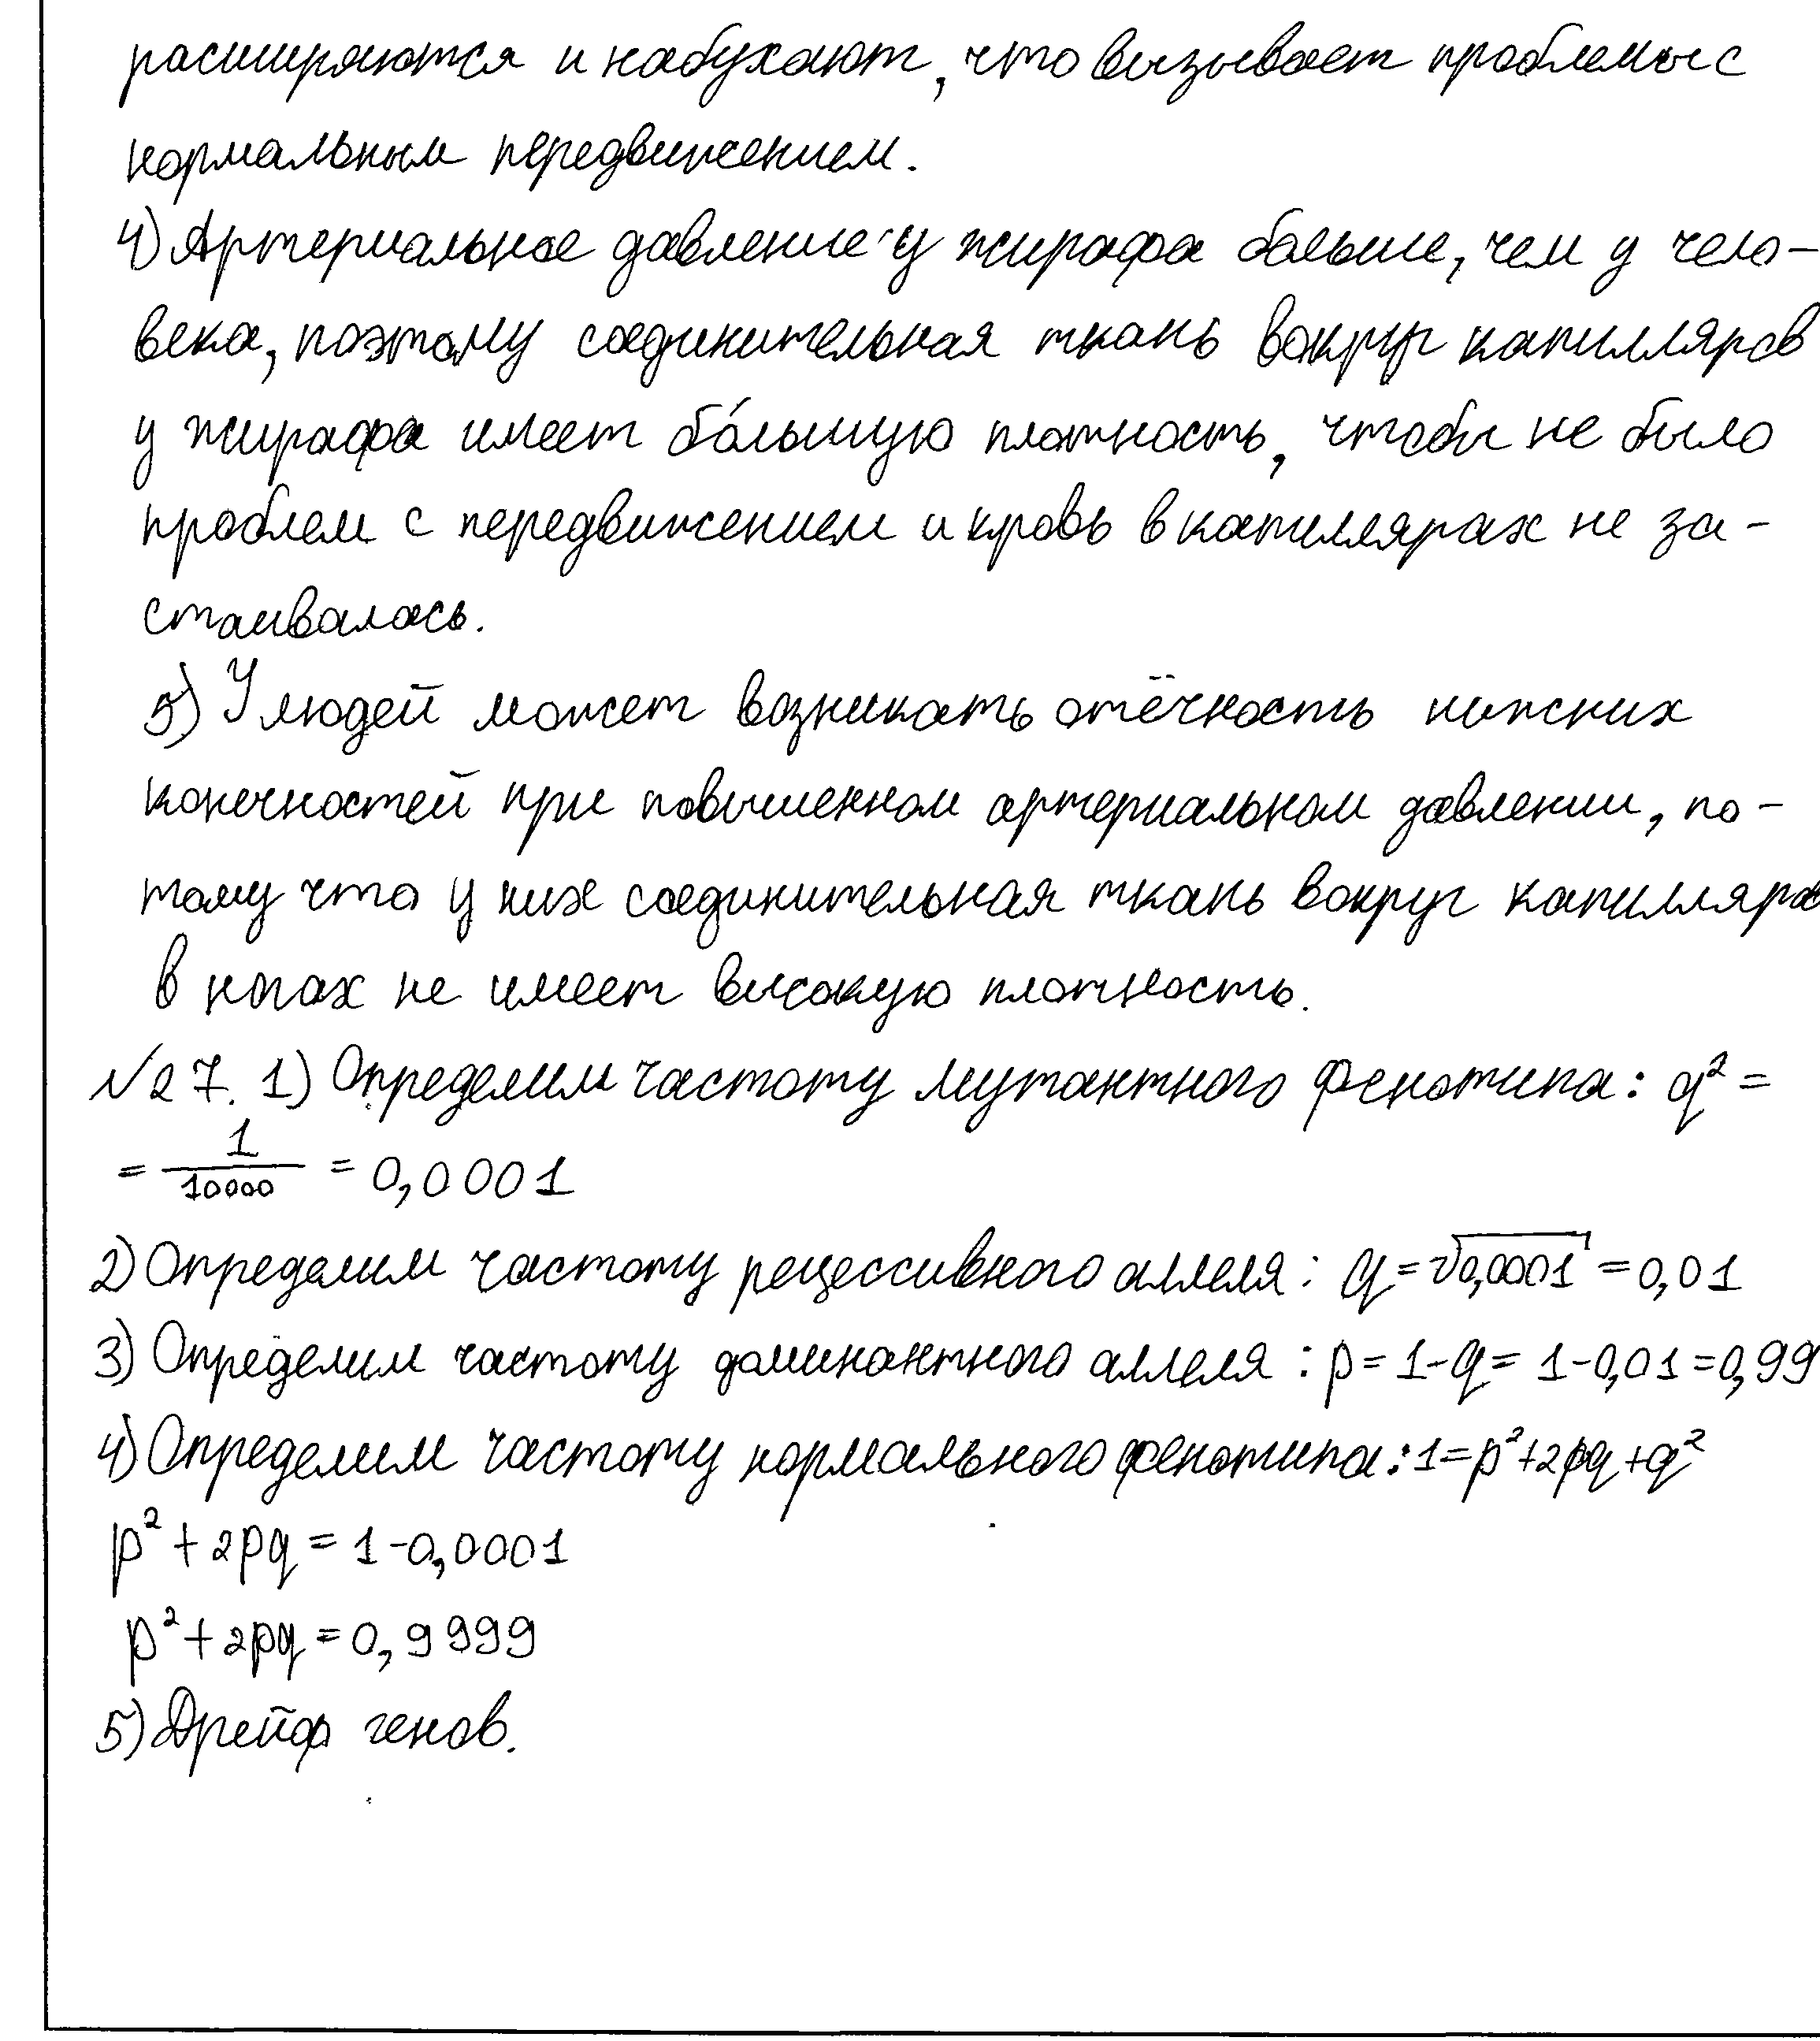 расширяются и набухают, что вызывает проблемы с
нормальным передвижением.
4) Артериальное давление у жирафа больше, чем у чело-
века, поэтому соединительная ткань вокруг капилляров
у жирафа имеет бо́льшую плотность, чтобы не было
проблем с передвижением и кровь в капиллярах не за-
стаивалась.
5) У людей может возникать отёчность нижних
конечностей при повышенном артериальном давлении, по-
тому что у них соединительная ткань вокруг капилляров
в ногах не имеет высокую плотность.
№27. 1) Определим частоту мутантного фенотипа: q² =
= 1/10000 = 0,0001
2) Определим частоту рецессивного аллеля: q = √0,0001 = 0,01
3) Определим частоту доминантного аллеля: p = 1-q = 1-0,01 = 0,99
4) Определим частоту нормального фенотипа: 1 = p² + 2pq + q²
p² + 2pq = 1-0,0001
p² + 2pq = 0,9999
5) Дрейф генов.